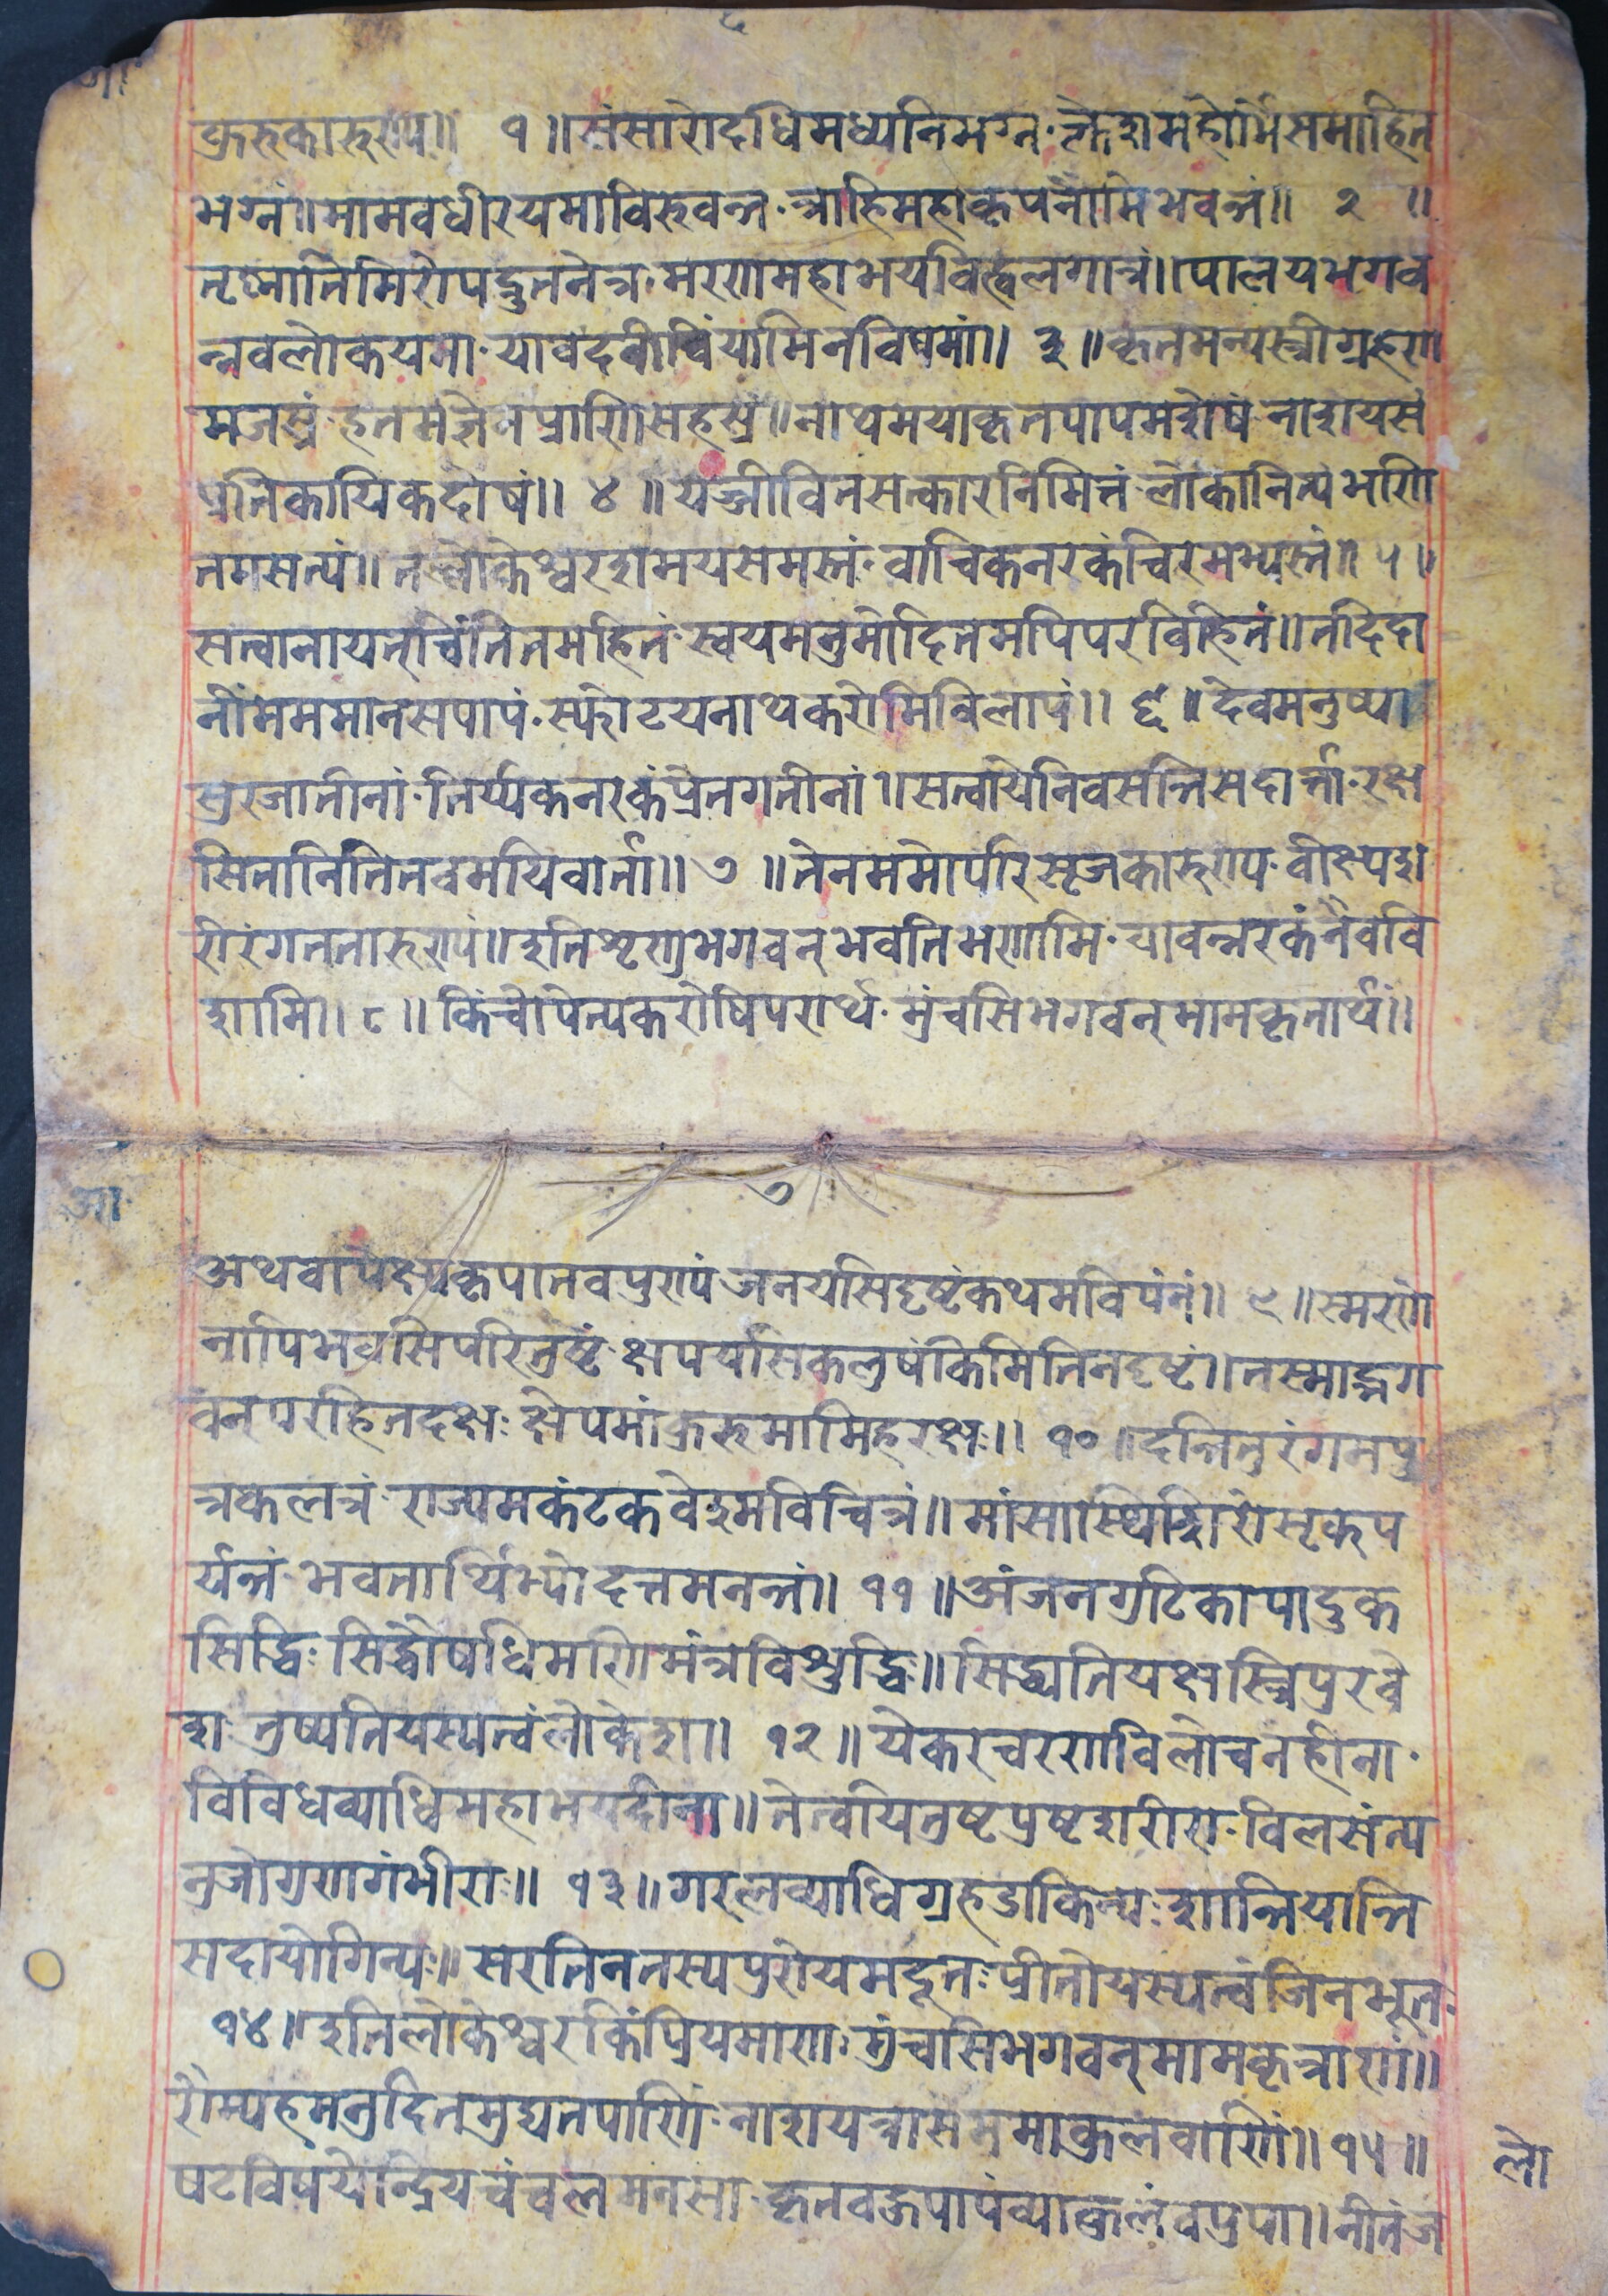 आ
क्रुरुकारुण्यं॥ १॥संसारोदधिमध्यनिमग्न·क्लेशमहोर्मिसमाहित
भग्नं॥मामवधीरयमाविरुवन्त·त्राहिमहाकृपनौमिभवन्तं॥ २ ॥
तृष्नातिमिरोपद्रुतनेत्र·मरणमहाभयविह्वलगात्रं॥पालयभगव
न्नवलोकयमा·यावदवीचिंयामिनविषमां॥ ३॥कृतमन्यस्त्रीग्रहण
मजस्रं·हतमज्ञेनप्राणिसहस्रं॥नाथमयाकृतपापमशेषं·नाशयसं
प्रतिकायिकदोषं॥ ४॥यज्जीवितसत्कारनिमित्तं·लोकानित्यंभणि
तमसत्यं॥तल्लोकेश्वरशमयसमस्तं·वाचिकनरकंचिरमभ्यस्तं॥ ५॥
सत्वानायत्चिंतितमहितं·स्वयमनुमोदितमपिपरविहितं॥तदिदा
नींमममानसपापं·स्फोटयनाथकरोमिविलापं॥ ६॥देवमनुष्या
सुरजातीनां·तिर्य्यक्नरकंप्रेतगतीनां॥सत्वायेनिवसन्तिसदार्त्ता·रक्ष
सितानितितवमयिवार्ता॥ ७॥तेनममोपरिसृजकारुण्य·वीक्ष्यश
रीरंगततारुण्यं॥इतिशृणुभगवन्भवतिभणामि·यावन्नरकंनैववि
शामि॥ ८॥किंचोपेत्यकरोषिपरार्थ·मुंचसिभगवन्मामकृतार्थं॥
७
आ
अथवापेक्ष्यकृपातवपुण्यं·जनयसिदृष्टंकथमविपंनं॥ ९॥स्मरणे
नापिभवसिपरितुष्टं·क्षपयसिकलुषंकिमितिनदृष्टं॥तस्माद्भग
वन्परहितदक्षः·क्षेपमांक्रुरुमामिहरक्षः॥ १०॥दन्तितुरंगमपु
त्रकलत्रं·राज्यमकंटकवेश्मविचित्रं॥मांसास्थिशिरोसृक्प
र्यन्तं·भवतार्थिभ्योदत्तमनन्तं॥ ११॥अंजनगुटिकापादुक
सिद्धिः·सिद्धौषधिमणिमंत्रविशुद्धिः॥सिद्ध्यतियक्षस्त्रिपुरवे
श·तुष्यतियस्यत्वंलोकेश॥ १२॥येकरचरणविलोचनहीना·
विविधव्याधिमहाभयदीना॥तेत्वयितुष्टपुष्टशरीरा·विलसंत्य
नुजोगुणगंभीराः॥ १३॥गरलव्याधिग्रहडाकिन्यः·शान्तियान्ति
सदायोगिन्यः॥सरतिनतस्यपुरोयमदूतः·प्रीतोयस्यत्वंजिनभूत·
१४॥इतिलोकेश्वरकिंप्रियमाण·मुंचसिभगवन्मामकृत्राणं॥
रौम्यहमनुदिनमुद्यतपाणिं·नाशयत्रासममाकुलवाणिं॥ १५॥
लो
षटविषयेन्द्रियचंचलमनसा·कृतवद्रुपापंव्याकुलवपुषा॥नीतंज